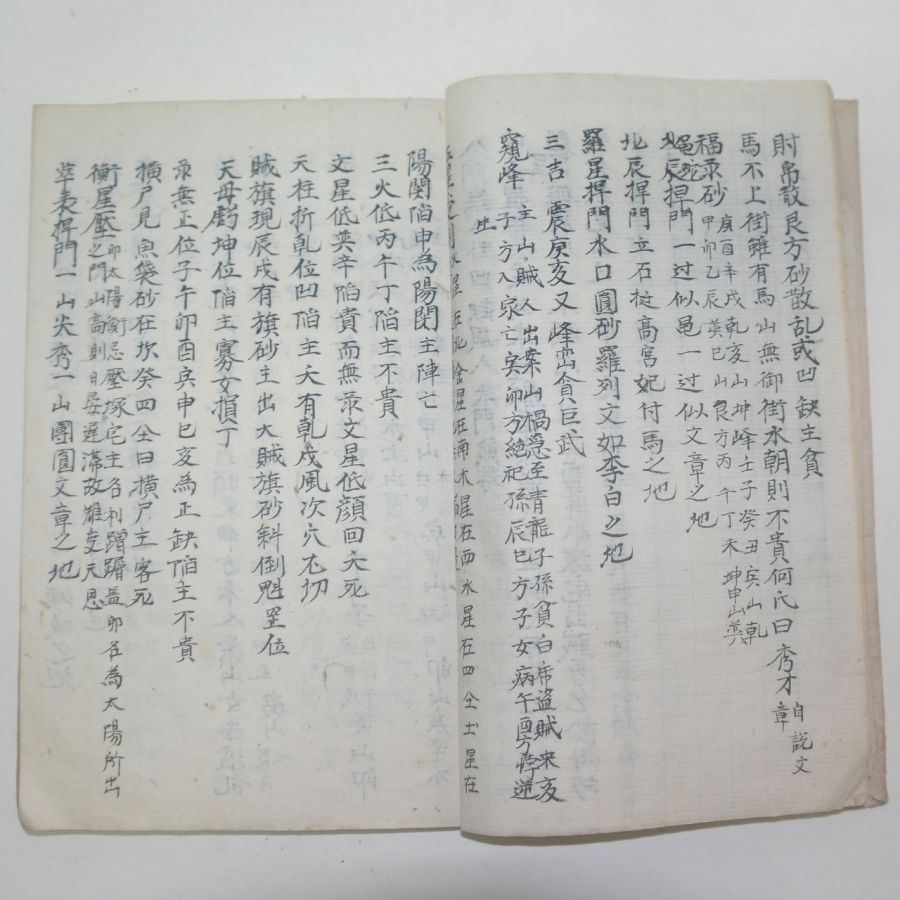 財帛散艮方砂散乱或凹缺主貧
馬不上街雖有馬山無御街水朝則不貴何氏曰秀才自説文章
福彔砂庚酉辛戌乾亥山坤峰壬子癸丑寅山乾
甲卯乙辰巽巳山艮方丙午丁未坤申山巽
北辰捍門一过似黾一过似文章之地
北辰捍門立石挺高宮妃付馬之地
羅星捍門水口圓砂羅列文如李白之地
三吉震庚亥又峰峦貪巨武
窺峰主山賊人出案山禍恐至靑龍子孫貧白帍盜賊来亥
子方入家亡寅卯方絶祀孫辰巳方子女病午酉方悖逆
在北金星在南木星在西水星在四仝土星在
陽関陷申為陽関主陣亡
三火低丙午丁陷主不貴
文星低巽辛陷貴而無彔文星低顔回夭死
天柱折乾位凹陷主夭有乾戌風次穴不切
賊旗現辰戌有旗砂主出大賊旗砂斜倒魁罡位
天母虧坤位陷主寡女損丁
彔無正位子午卯酉寅申巳亥為正缺陷主不貴
橫尸見魚袋砂在坎癸四仝曰橫尸主客死
衝星壓卯太陽衝忌壓塚宅主名利蹭蹬盖卯在為太陽所出
之門山高則日晏遲滯故雖支元恩
華表捍門一山尖秀一山團圓文章之地